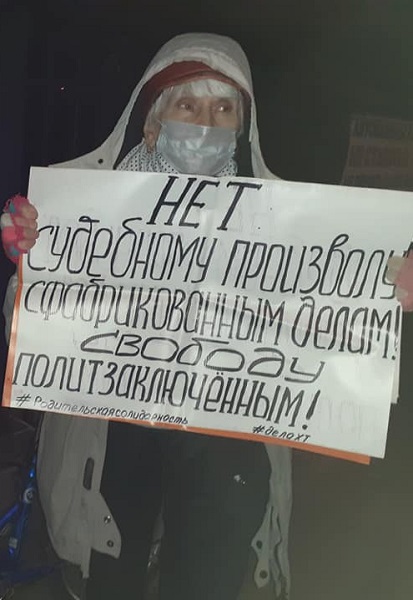 НЕТ
СУДЕБНОМУ ПРОИЗВОЛУ
СФАБРИКОВАННЫМ ДЕЛАМ!
СВОБОДУ
ПОЛИТЗАКЛЮЧЁННЫМ!
#Родительскаясолидарность
#делоХТ